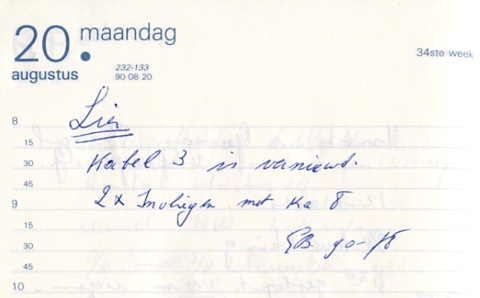 20. maandag
augustus
232-133
90 08 20
34ste week
8
Lier
15
30
Kabel 3 is vernieuwd.
45
9
2x Invliegen met Ka 8
15
30
45
10